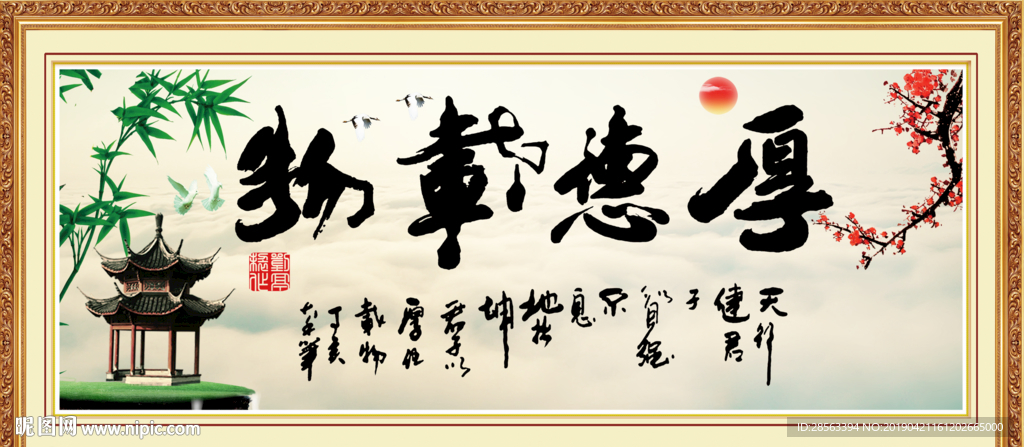 厚德載物
天行
健君
子
以自强
不
息
地势
坤
君子以
厚德
載物
丁亥
昵图网 www.nipic.com
ID:28563394 NO:20190421161202665000